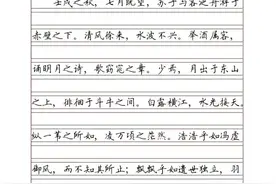 壬戌之秋，七月既望，苏子与客泛舟游于
赤壁之下。清风徐来，水波不兴。举酒属客，
诵明月之诗，歌窈窕之章。少焉，月出于东山
之上，徘徊于斗牛之间。白露横江，水光接天。
纵一苇之所如，凌万顷之茫然。浩浩乎如冯虚
御风，而不知其所止；飘飘乎如遗世独立，羽